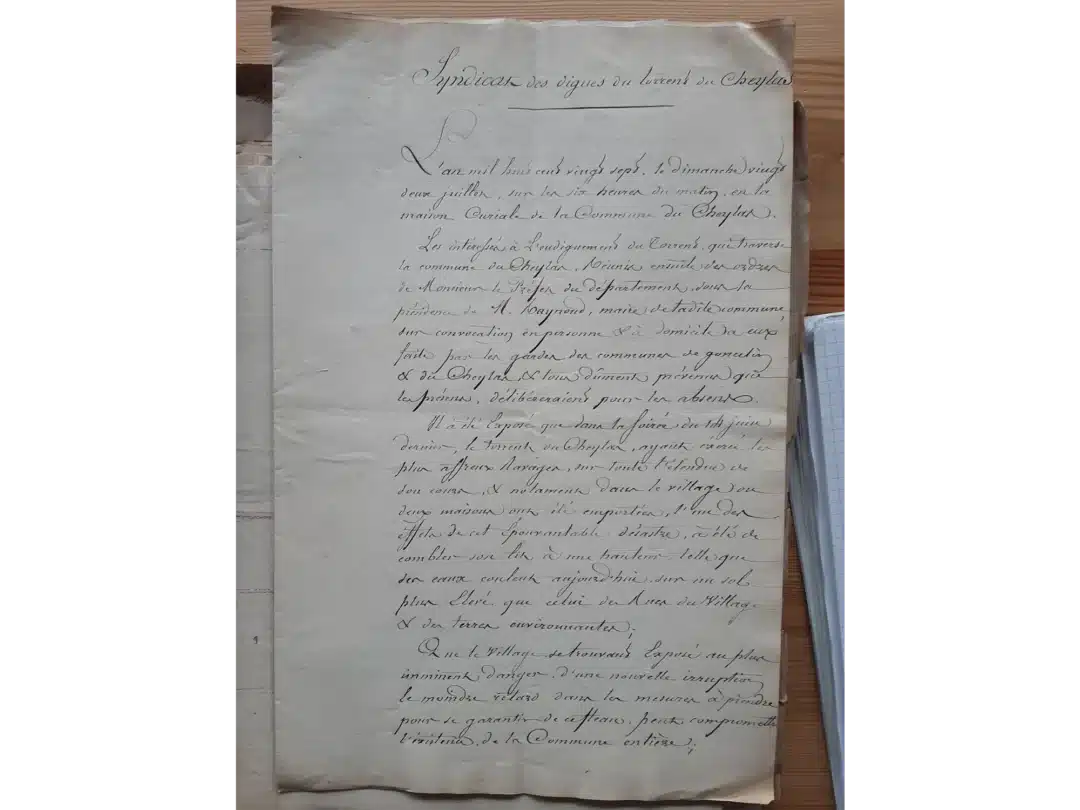 Syndicat des digues du torrent du Cheylas
L'an mil huit cent vingt sept, le dimanche vingt
deux juillet, sur les six heures du matin, en la
maison Curiale de la Commune du Cheylas.
Les intéressés à L'endiguement du Torrent, qui traverse
la commune du Cheylas, Réunis ensuite des ordres
de Monsieur le Préfet du département, sous la
présidence de M. Raynaud, maire de ladite commune
sur convocation en personne & à domicile à eux
faite par les gardes des communes de goncelin
& du Cheylas, & tous dûment prévenus que
les présens, délibéreraient pour les absens.
Il a été Exposé que dans la soirée du 14 juin
dernier, le torrent du Cheylas, ayant éxercé les
plus affreux Ravages, sur toute l'étendue de
son cours, & notament dans le village, ou
deux maisons ont été emportées, l'un des
effets de cet épouvantable désastre, a été de
combler son lit à une hauteur telle que
ses eaux coulent aujourd'hui sur un sol
plus Elevé que celui des Rues du Village
& des terres environnantes;
Que le Village se trouvant Exposé au plus
imminent danger, d'une nouvelle irruption
le moindre retard dans les mesures à prendre
pour se garantir de ce fleau, peut compromettre
l'existence de la Commune entière;